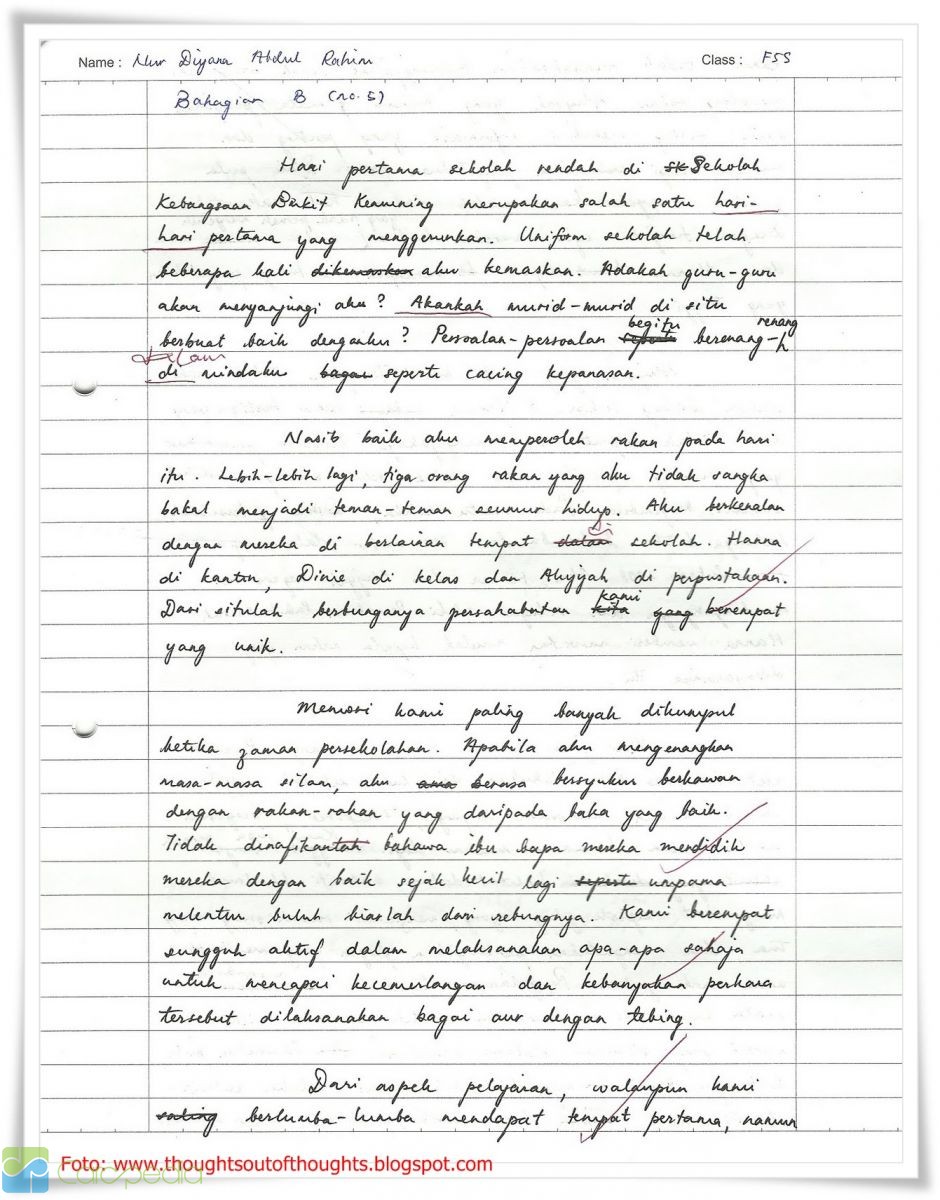 Name : Nur Diyana Abdul Rahim Class : F5S
Bahagian B (no. 5)
Hari pertama sekolah rendah di sk Sekolah
Kebangsaan Bukit Kemuning merupakan salah satu hari-
hari pertama yang menggerunkan. Uniform sekolah telah
beberapa kali dikemaskan aku kemaskan. Adakah guru-guru
akan menyanjungi aku? Akankah murid-murid di situ
berbuat baik denganku? Persoalan-persoalan seperti begitu berenang-renang
di dalam mindaku bagai seperti cacing kepanasan.
Nasib baik aku memperoleh rakan pada hari
itu. Lebih-lebih lagi, tiga orang rakan yang aku tidak sangka
bakal menjadi teman-teman seumur hidup. Aku berkenalan
dengan mereka di berlainan tempat dalam di sekolah. Hanna
di kantin, Dinie di kelas dan Aliyyah di perpustakaan.
Dari situlah berbunganya persahabatan kita kami yang berempat
yang unik.
Memori kami paling banyak dikumpul
ketika zaman persekolahan. Apabila aku mengenangkan
masa-masa silam, aku ama berasa bersyukur berkawan
dengan rakan-rakan yang daripada baka yang baik.
Tidak dinafikantah bahawa ibu bapa mereka mendidik
mereka dengan baik sejak kecil lagi seperti umpama
melentur buluh biarlah dari rebungnya. Kami berempat
sungguh aktif dalam melaksanakan apa-apa sahaja
untuk mencapai kecemerlangan dan kebanyakan perkara
tersebut dilaksanakan bagai aur dengan tebing.
Dari aspek pelajaran, walaupun kami
saling berlumba-lumba mendapat tempat pertama, namun
Foto: www.thoughtsoutofthoughts.blogspot.com